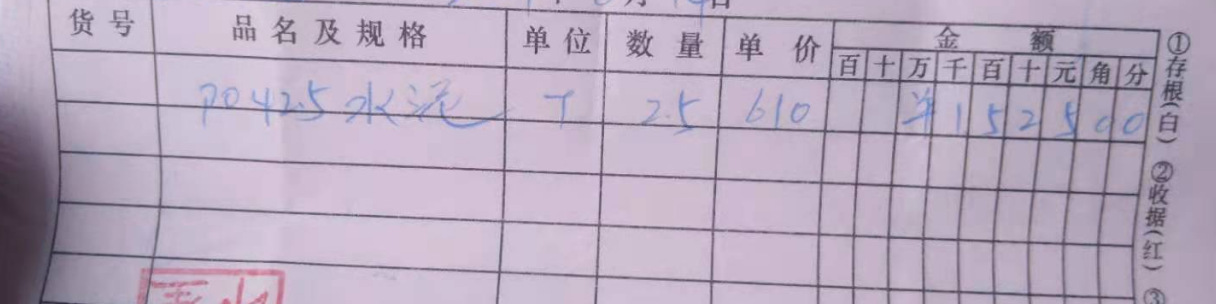 日
货号 品名及规格 单位 数量 单价 金额
百 十 万 千 百 十 元 角 分
PO42.5水泥 T 2.5 610 ¥ 1 5 2 5 0 0
①存根(白) ②收据(红) ③